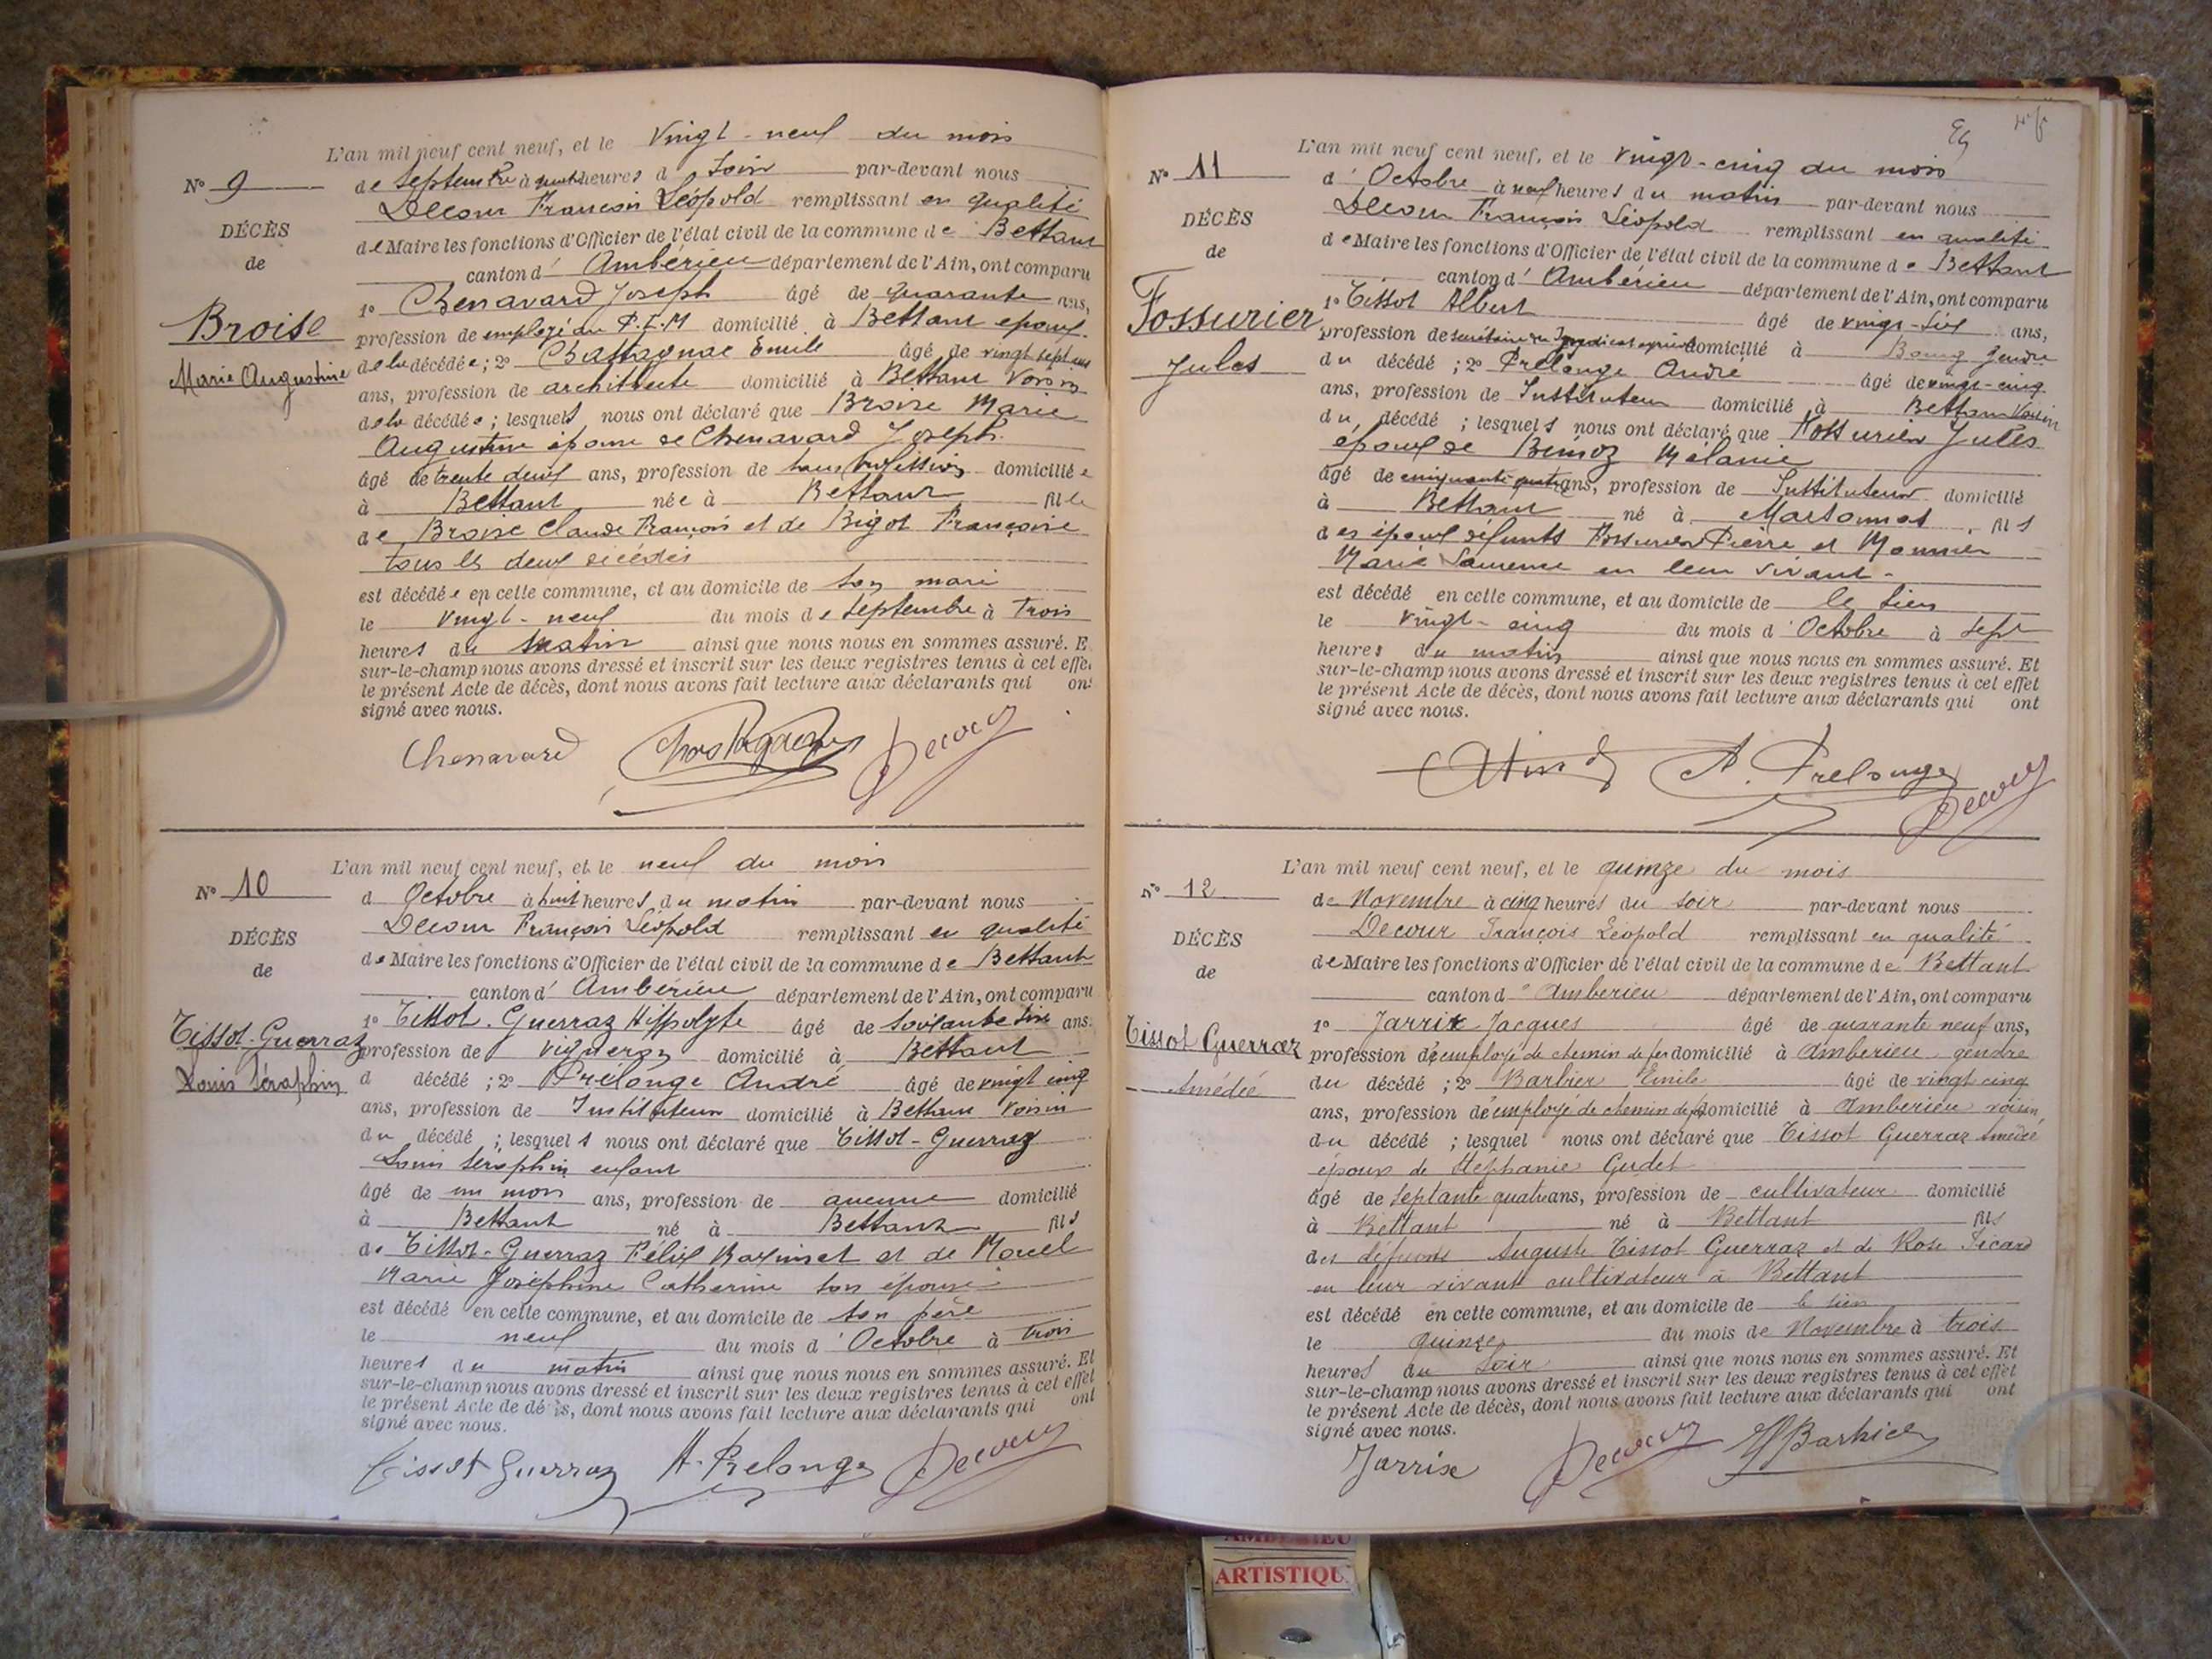 L'an mil neuf cent neuf, et le vingt-neuf du mois
N° 9
de septembre à heures d soir par-devant nous
Decour François Léopold remplissant en qualité
DÉCÈS
de Maire les fonctions d'Officier de l'état civil de la commune de Bettant
de
canton d' Ambérieu département de l'Ain, ont comparu
1° Chenavard Joseph âgé de quarante ans,
Broise
profession de employé au P.L.M domicilié à Bettant époux
Marie Augustine
de la décédée ; 2° Chassagnac Emile âgé de vingt sept ans
ans, profession de architecte domicilié à Bettant Voisin
de la décédée ; lesquels nous ont déclaré que Broise Marie
Augustine épouse de Chenavard Joseph
âgé de trente deux ans, profession de sans profession domiciliée
à Bettant née à Bettant fille
de Broise Claude François et de Bigot Françoise
tous les deux décédés
est décédée en cette commune, et au domicile de son mari
le vingt-neuf du mois de septembre à trois
heures du matin ainsi que nous nous en sommes assuré. E
sur-le-champ nous avons dressé et inscrit sur les deux registres tenus à cet effe
le présent Acte de décès, dont nous avons fait lecture aux déclarants qui ont
signé avec nous.
Chenavard Decour
L'an mil neuf cent neuf, et le neuf du mois
N° 10
d Octobre à huit heures du matin par-devant nous
Decour François Léopold remplissant en qualité
DÉCÈS
de Maire les fonctions d'Officier de l'état civil de la commune de Bettant
de
canton d' Ambérieu département de l'Ain, ont comparu
1° Tissot-Guerraz Hippolyte âgé de soixante ans.
Tissot-Guerraz
profession de vigneron domicilié à Bettant
Louis Séraphin
d décédé ; 2° Prélonge André âgé de vingt cinq
ans, profession de Instituteur domicilié à Bettant voisin
du décédé ; lesquels nous ont déclaré que Tissot-Guerraz
Louis Séraphin enfant
âgé de un mois ans, profession de aucune domicilié
à Bettant né à Bettant fils
de Tissot-Guerraz Félix et de Morel
Marie Joséphine Catherine son épouse
est décédé en cette commune, et au domicile de son père
le neuf du mois d'Octobre à trois
heures du matin ainsi que nous nous en sommes assuré. Et
sur-le-champ nous avons dressé et inscrit sur les deux registres tenus à cet effet
le présent Acte de décès, dont nous avons fait lecture aux déclarants qui ont
signé avec nous.
Tissot Guerraz A. Prelonge Decour
L'an mil neuf cent neuf, et le vingt-cinq du mois
N° 11
d'Octobre à neuf heures du matin par-devant nous
DÉCÈS
Decour François Léopold remplissant en qualité
de
de Maire les fonctions d'Officier de l'état civil de la commune de Bettant
canton d' Ambérieu département de l'Ain, ont comparu
1° Tissot Albert âgé de vingt-six ans,
Fossurier
profession de secrétaire du syndicat agricole domicilié à Bourg gendre
Jules
du décédé ; 2° Prélonge André âgé de vingt-cinq
ans, profession de Instituteur domicilié à Bettant Voisin
du décédé ; lesquels nous ont déclaré que Fossurier Jules
époux de Benoz Mélanie
âgé de cinquante quatre ans, profession de Instituteur domicilié
à Bettant né à Martonnas fils
des époux défunts Fossurier Pierre et Monnier
Marie Laurence en leur vivant-
est décédé en cette commune, et au domicile de le sien
le vingt-cinq du mois d'Octobre à sept
heures du matin ainsi que nous nous en sommes assuré. Et
sur-le-champ nous avons dressé et inscrit sur les deux registres tenus à cet effet
le présent Acte de décès, dont nous avons fait lecture aux déclarants qui ont
signé avec nous.
A. Prelonge Decour
L'an mil neuf cent neuf, et le quinze du mois
N° 12
de Novembre à cinq heures du soir par-devant nous
Decour François Léopold remplissant en qualité
DÉCÈS
de Maire les fonctions d'Officier de l'état civil de la commune de Bettant
de
canton d' Amberieu département de l'Ain, ont comparu
1° Jarrix Jacques âgé de quarante neuf ans,
Tissot Guerraz
profession d'employé de chemin de fer domicilié à Amberieu gendre
Amédée
du décédé ; 2° Barbier Emile âgé de vingt cinq
ans, profession d'employé de chemin de fer domicilié à Amberieu voisin
du décédé ; lesquel nous ont déclaré que Tissot Guerraz Amédée
époux de Stéphanie Gudet
âgé de septante quatre ans, profession de cultivateur domicilié
à Bettant né à Bettant fils
des défunts Auguste Tissot Guerraz et de Rose Sicard
en leur vivant cultivateur à Bettant
est décédé en cette commune, et au domicile de le sien
le quinze du mois de Novembre à trois
heures du soir ainsi que nous nous en sommes assuré. Et
sur-le-champ nous avons dressé et inscrit sur les deux registres tenus à cet effet
le présent Acte de décès, dont nous avons fait lecture aux déclarants qui ont
signé avec nous.
Jarrix Decour Barbier
AMBERIEU
ARTISTIQU